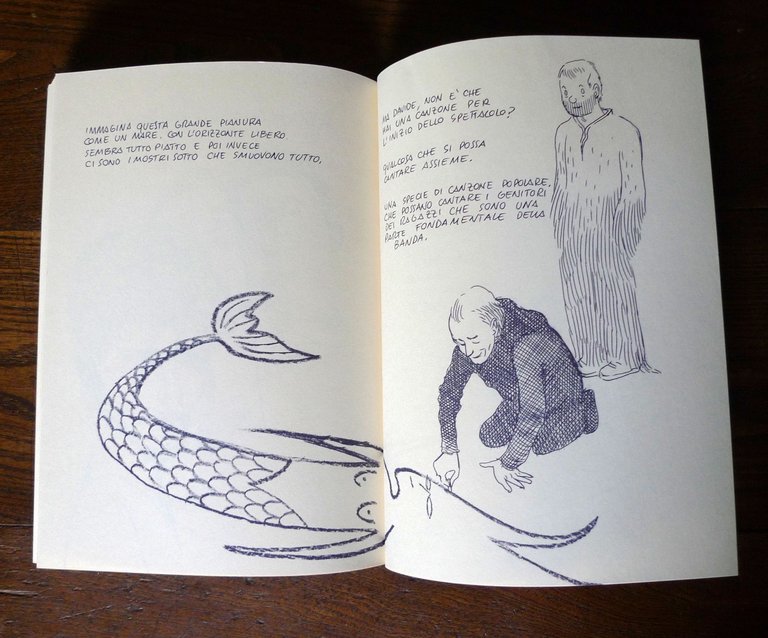 IMMAGINA QUESTA GRANDE PIANURA
COME UN MARE. CON L'ORIZZONTE LIBERO
SEMBRA TUTTO PIATTO E POI INVECE
CI SONO I MOSTRI SOTTO CHE SMUOVONO TUTTO.
MA DAVIDE, NON E' CHE
HAI UNA CANZONE PER
L'INIZIO DELLO SPETTACOLO?
QUALCOSA CHE SI POSSA
CANTARE ASSIEME.
UNA SPECIE DI CANZONE POPOLARE,
CHE POSSANO CANTARE I GENITORI
DEI RAGAZZI CHE SONO UNA
PARTE FONDAMENTALE DELLA
BANDA.